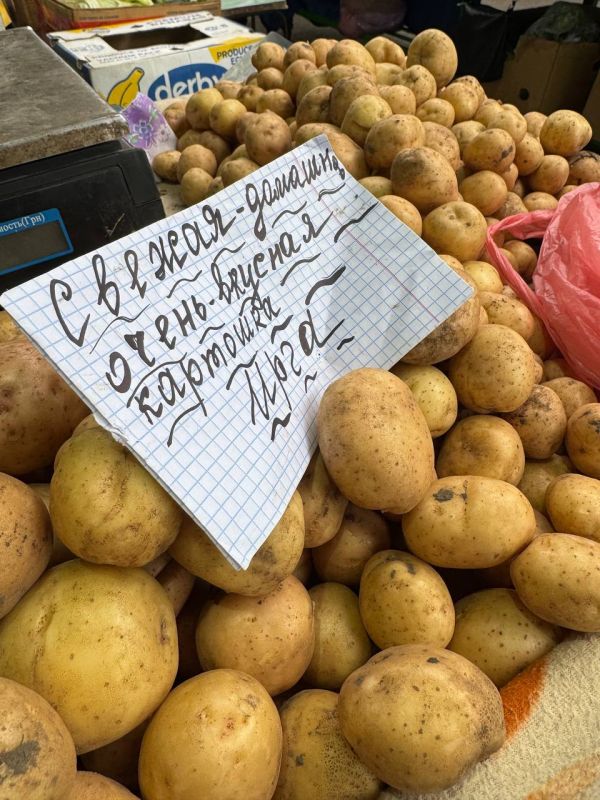 PRODUCE
derby
мость(Грн)
Свежая-домашняя
очень вкусная
картошка
Ирга